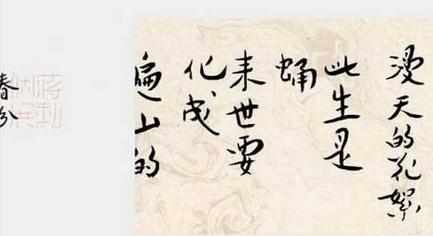 漫天的花絮
此生是
蛹
来世要
化成
遍山的
春分